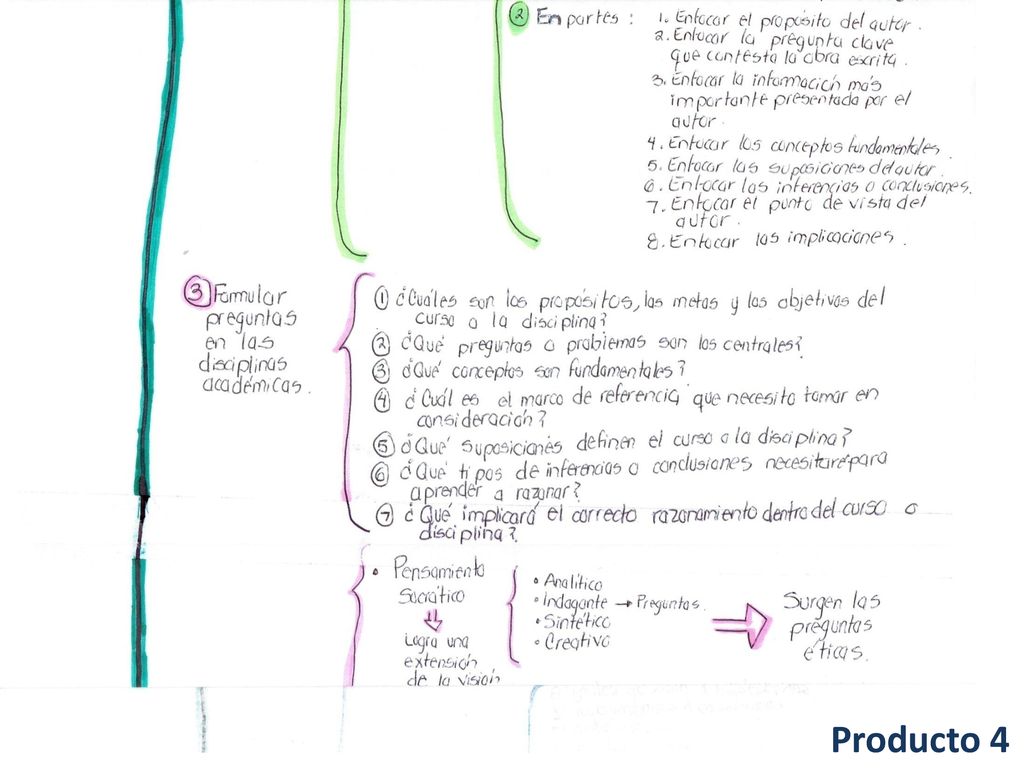 ② En partes : 1. Enfocar el propósito del autor.
2. Enfocar la pregunta clave
que contesta la obra escrita.
3. Enfocar la información más
importante presentada por el
autor.
4. Enfocar los conceptos fundamentales.
5. Enfocar las suposiciones del autor.
6. Enfocar las inferencias o conclusiones.
7. Enfocar el punto de vista del
autor.
8. Enfocar las implicaciones.
③ Formular
preguntas
en las
disciplinas
académicas.
① ¿Cuáles son los propósitos, las metas y los objetivos del
curso o la disciplina?
② ¿Qué preguntas o problemas son los centrales?
③ ¿Qué conceptos son fundamentales?
④ ¿Cuál es el marco de referencia que necesito tomar en
consideración?
⑤ ¿Qué suposiciones definen el curso o la disciplina?
⑥ ¿Qué tipos de inferencias o conclusiones necesitaré para
aprender a razonar?
⑦ ¿Qué implicará el correcto razonamiento dentro del curso o
disciplina?
• Pensamiento
Socrático
Logra una
extensión
de la visión
• Analítico
• Indagante → Preguntas.
• Sintético
• Creativo
Surgen las
preguntas
éticas.
Producto 4